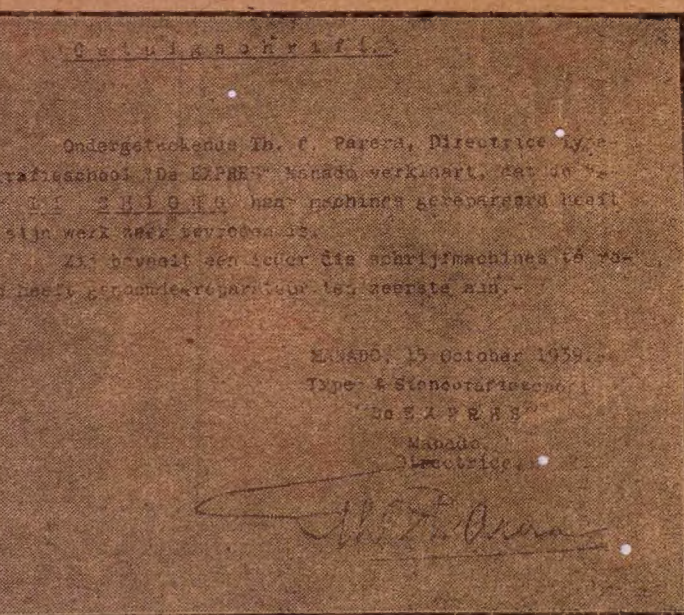 Getuigschrift.
Ondergeteekende Th. P. Parera, Directrice Type-
rafieschool "De EXPRES" Manado verklaart, dat de
haar machines gerepareerd heeft
zijn werk zeer tevreden is.
Zij beveelt een ieder die schrijfmachines te re-
heeft genoemde reparateur ten zeerste aan.-
MANADO, 15 October 1939.-
Type- & Stenografieschool
"De E X P R E S"
Manado.
Directrice,